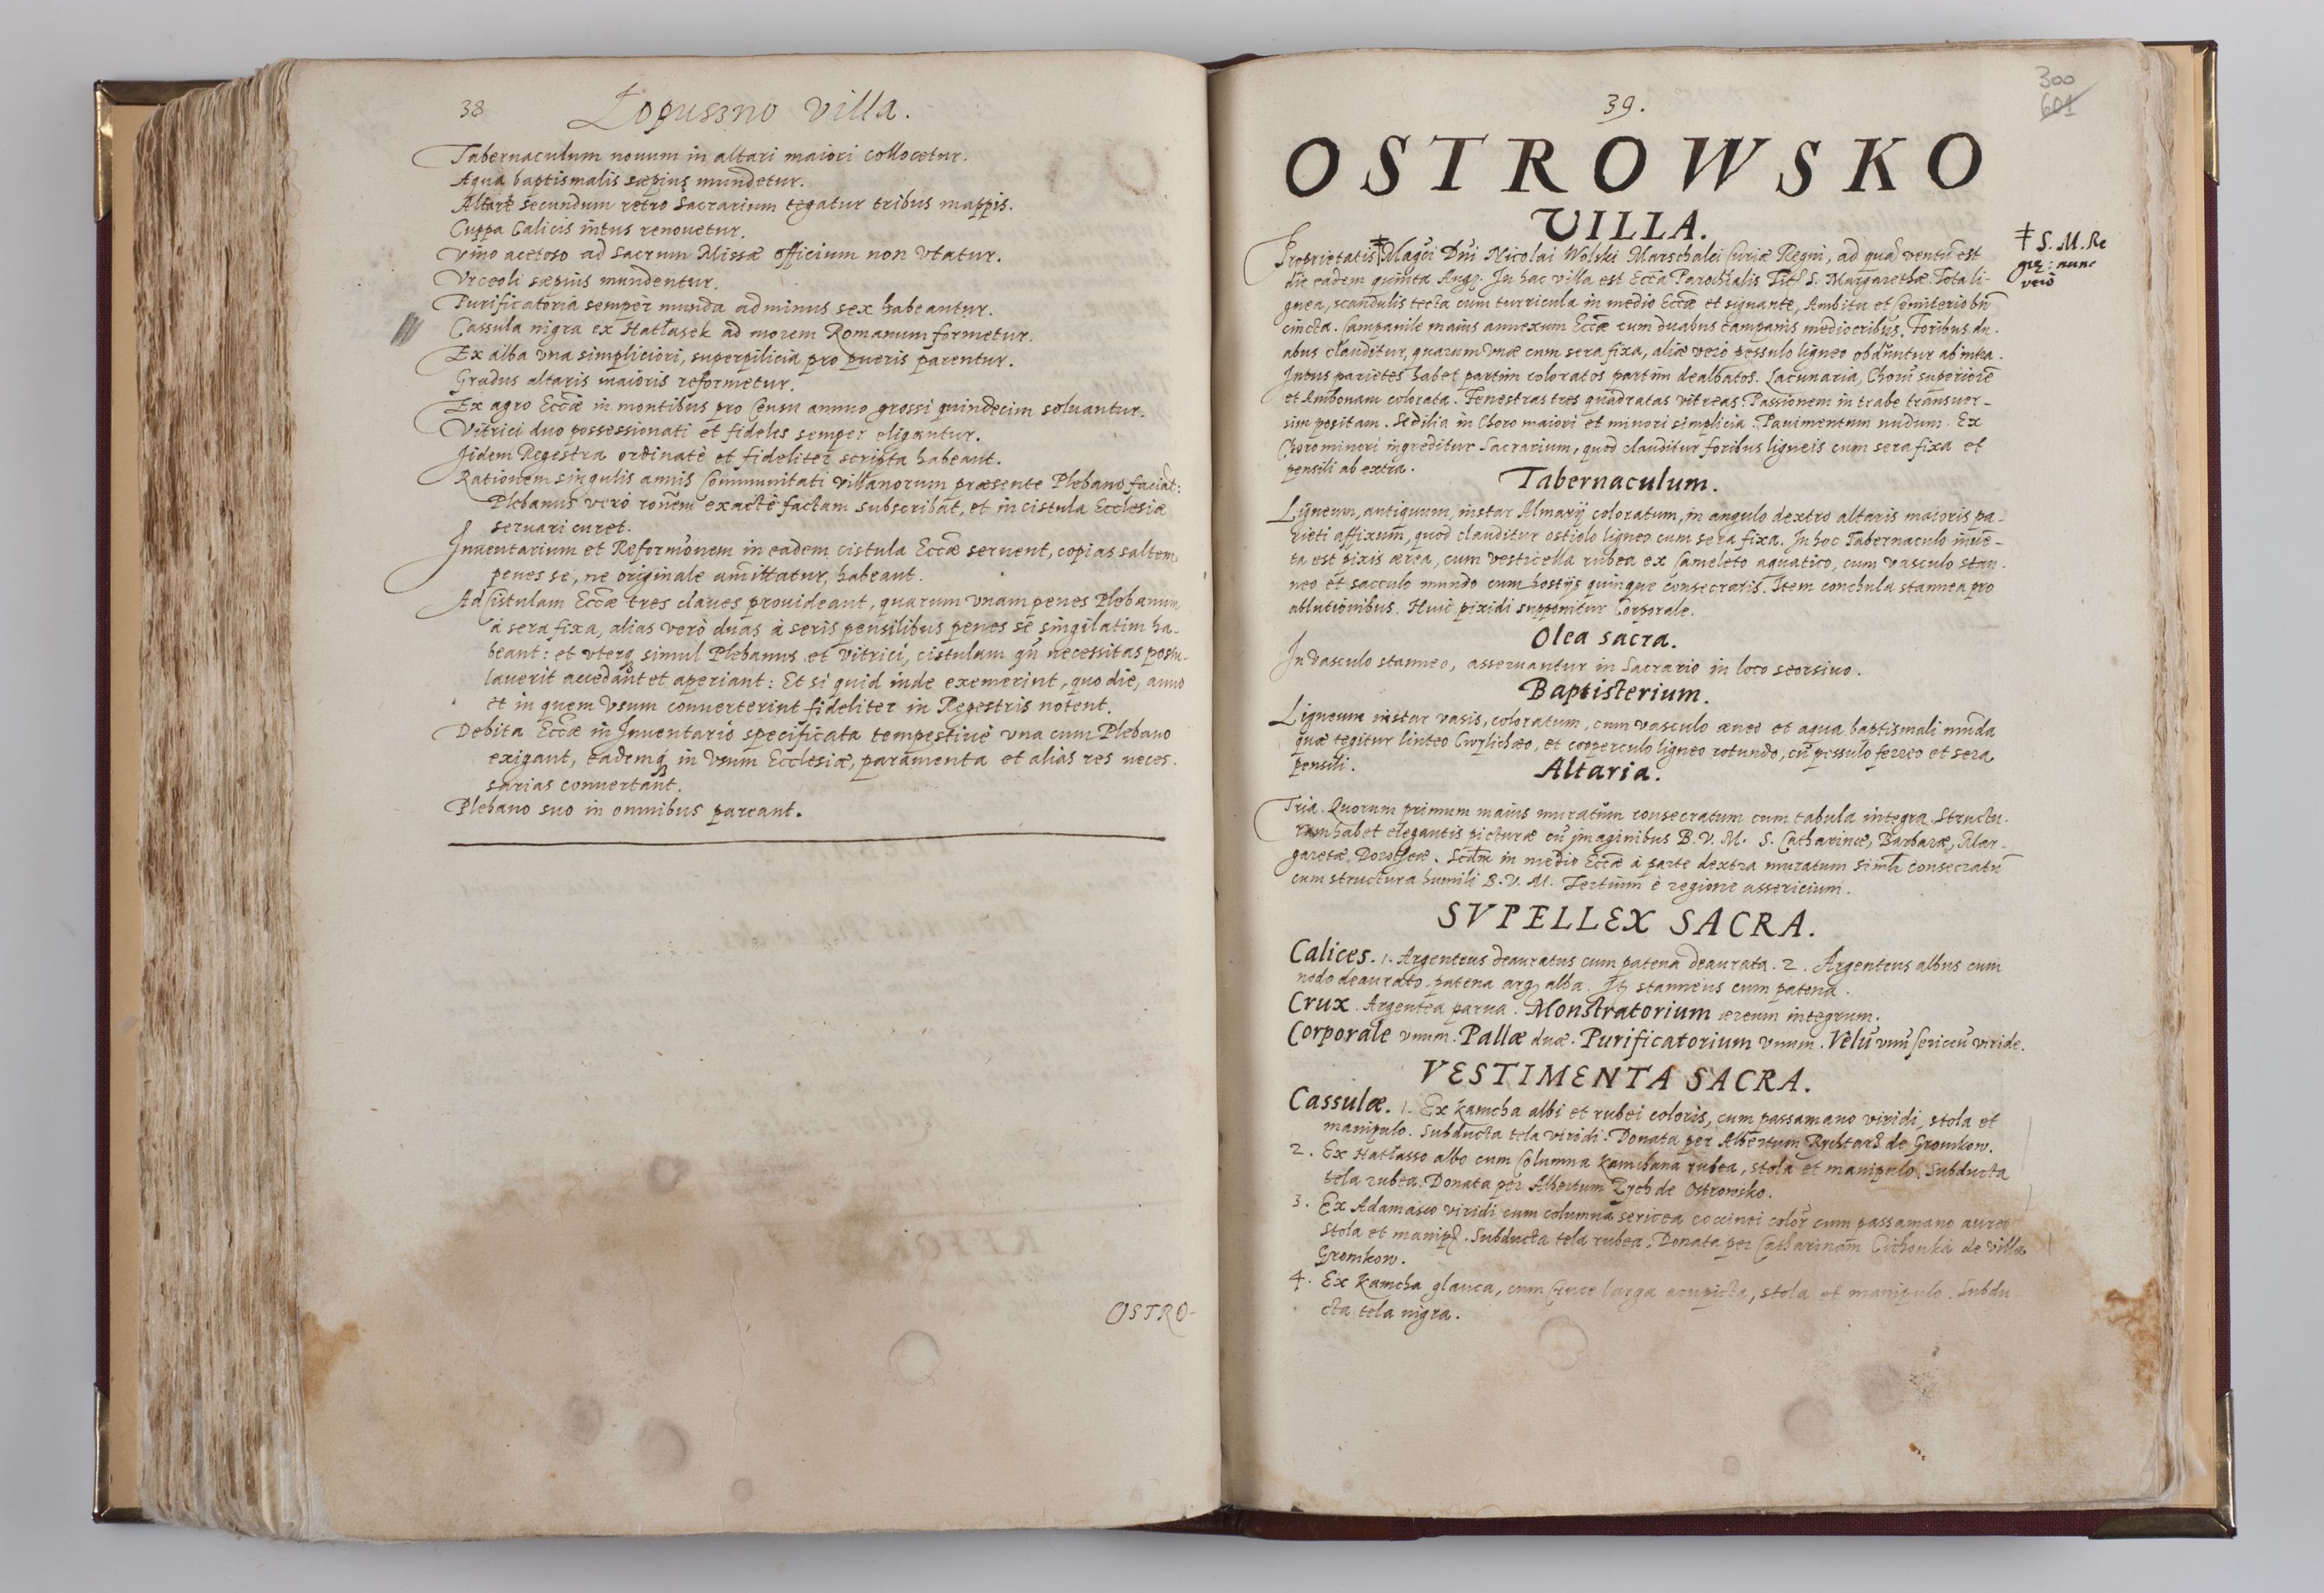 38 Łopuszno villa.
Tabernaculum nouum in altari maiori collocetur.
Aqua baptismalis sæpius mundetur.
Altare secundum retro Sacrarium tegatur tribus mappis.
Cuppa Calicis intus renouetur.
Vino acetoso ad Sacrum Missæ officium non vtatur.
Vrceoli sæpius mundentur.
Purificatoria semper munda ad minus sex habeantur.
Cassula nigra ex Hatłasek ad morem Romanum formetur.
Ex alba vna simpliciori, superpilicia pro pueris parentur.
Gradus altaris maioris reformetur.
Ex agro Eccæ in montibus pro Censu annuo grossi quindecim soluantur.
Vitrici duo possessionati et fideles semper eligantur.
Jidem Regestra ordinatè et fideliter scripta habeant.
Rationem singulis annis Communitati villanorum præsente Plebano faciāt:
Plebanus verò ronem exactè factam subscribat, et in cistula Ecclesiæ
seruari curet.
Inuentarium et Reformonem in eadem cistula Eccæ seruent, copias saltem
penes se, ne originale amittatur, habeant.
Ad Cistulam Eccæ tres claues prouideant, quarum vnam penes Plebanum
à sera fixa, alias verò duas à seris pensilibus penes se singilatim ha-
beant: et vterq simul Plebanus et Vitrici, cistulam qn necessitas postu-
lauerit accedant et aperiant: Et si quid inde exemerint, quo die, anno
et in quem Vsum conuerterint fideliter in Regestris notent.
Debita Eccæ in Inuentario specificata tempestiuè vna cum Plebano
exigant, eademq in Vsum Ecclesiæ, paramenta et alias res neces-
sarias conuertant.
Plebano suo in omnibus pareant.
OSTRO-
300
601
39.
OSTROWSKO
VILLA.
Proprietatis ‡ Magci Dni Nicolai Wolski Marschalci Curiæ Regni, ad quā ventū est
‡ S. M. Re
giæ: nunc
verò
die eadem quinta Aug. In hac villa est Ecca Parochialis Titl S. Margarethæ. Tota li-
gnea, scandulis tecta cum turricula in medio Eccæ et signante, Ambitu et Cemiterio bn
cincta. Campanile maius annexum Eccæ cum duabus campanis mediocribus. Foribus du-
abus clauditur, quarum vnæ cum sera fixa, aliæ verò pessulo ligneo obduntur ab intra.
Intus parietes habet partim coloratos partim dealbatos. Lacunaria, Chorū superiorē
et Ambonam colorata. Fenestras tres quadratas vitreas. Passionem in trabe transuer-
sim positam. Sedilia in Choro maiori et minori simplicia. Pauimentum nudum. Ex
Choro minori ingreditur Sacrarium, quod clauditur foribus ligneis cum sera fixa et
pensili ab extra.
Tabernaculum.
Ligneum, antiquum, instar Almarij coloratum, in angulo dextro altaris maioris pa-
rieti affixum, quod clauditur ostiolo ligneo cum sera fixa. In hoc Tabernaculo inue-
ta est pixis ærea, cum vesticella rubea ex Cameleto aquatico, cum vasculo stan-
neo et sacculo mundo cum hostijs quinque consecratis. Item conchula stannea pro
ablutionibus. Huic pixidi supponitur Corporale.
Olea sacra.
In vasculo stanneo, asseruantur in Sacrario in loco seorsiuo.
Baptisterium.
Ligneum instar vasis, coloratum, cum vasculo æneo et aqua baptismali mūda
quæ tegitur linteo Cwylichæo, et cooperculo ligneo rotundo, cū pessulo ferreo et sera
pensili.
Altaria.
Tria. Quorum primum maius muratum consecratum cum tabula integra. Structu-
ram habet elegantis picturæ cū imaginibus B. V. M. S. Catharinæ, Barbaræ, Mar-
garetæ, Dorotheæ. Scdm in medio Eccæ à parte dextra muratum simłr consecratū
cum structura humili B. V. M. Tertium è regione assericium.
SVPELLEX SACRA.
Calices. 1. Argenteus deauratus cum patena deaurata. 2. Argenteus albus cum
nodo deaurato patena arg. alba. It. stanneus cum patena.
Crux. Argentea parua. Monstratorium æreum integrum.
Corporale vnum. Pallæ duæ. Purificatorium vnum. Velū vnū sericeū viride.
VESTIMENTA SACRA.
Cassulæ. 1. Ex Kamcha albi et rubei coloris, cum passamano viridi, stola et
manipulo. Subducta tela viridi. Donata per Albertum Rychtarz de Gronkow.
2. Ex Hatłasso albo cum Columna kamchana rubea, stola et manipulo. Subducta
tela rubea. Donata per Albertum Zych de Ostrowsko.
3. Ex Adamasco viridi cum columna sericea coccinei color cum passamano aureo
Stola et manipl. Subducta tela rubea. Donata per Catharinam Cichonka de villa
Gronkow.
4. Ex Kamcha glauca, cum Cruce larga acupicta, stola et manipulo. Subdu
cta tela nigra.